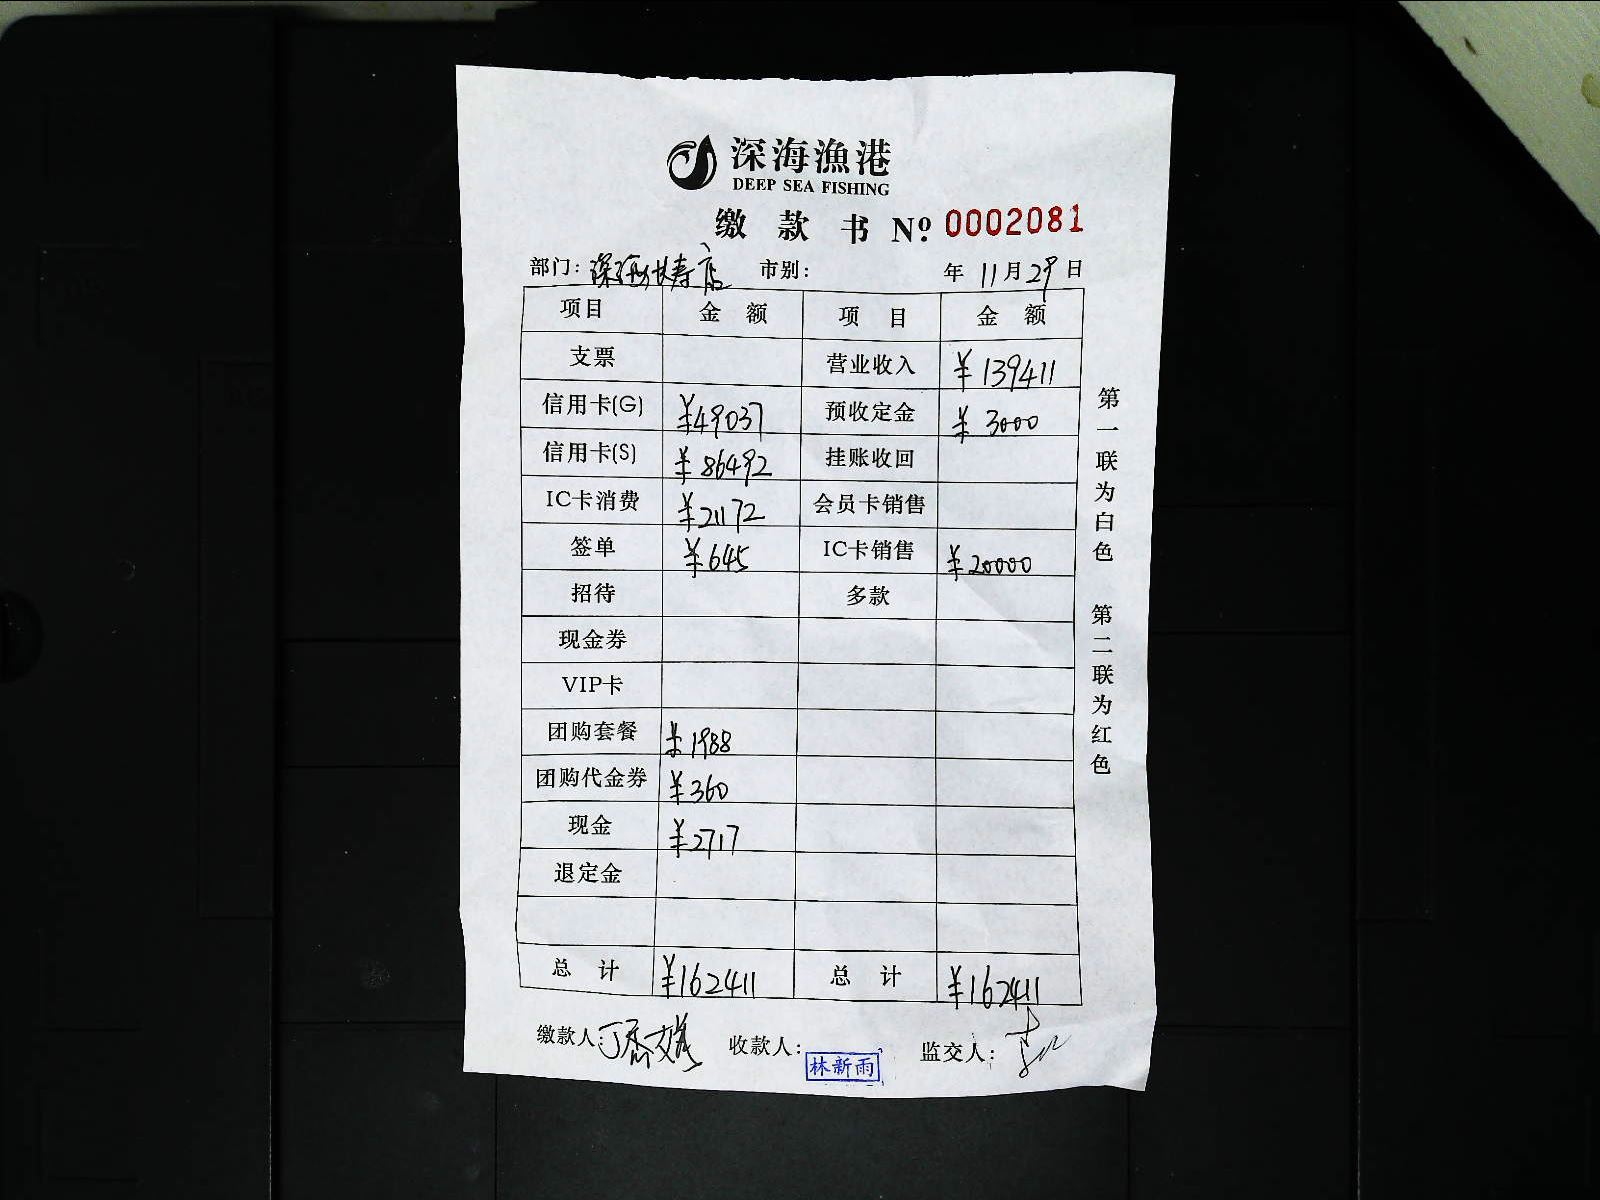 深海漁港
DEEP SEA FISHING
缴 款 书 Nº. 0002081
部门: 深海长寿店 市别: 年 11月29日
项目 金 额 项 目 金 额
支票 营业收入 ¥139411
信用卡(G) ¥49037 预收定金 ¥3000
信用卡(S) ¥86492 挂账收回
IC卡消费 ¥21172 会员卡销售
签单 ¥645 IC卡销售 ¥20000
招待 多款
现金券
VIP卡
团购套餐 ¥1988
团购代金券 ¥360
现金 ¥2717
退定金
总 计 ¥162411 总 计 ¥162411
缴款人: 收款人: 林新雨 监交人:
第一联为白色 第二联为红色